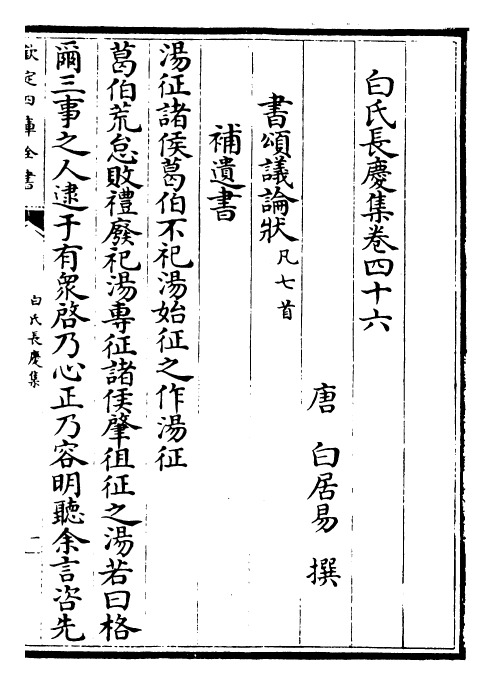 白氏長慶集卷四十六
唐　白居易　撰
書頌議論狀凡七首
補遺書
湯征諸侯葛伯不祀湯始征之作湯征
葛伯荒怠敗禮廢祀湯專征諸侯肇徂征之湯若曰格
爾三事之人逮于有衆啓乃心正乃容明聽余言咨先
欽定四庫全書
白氏長慶集